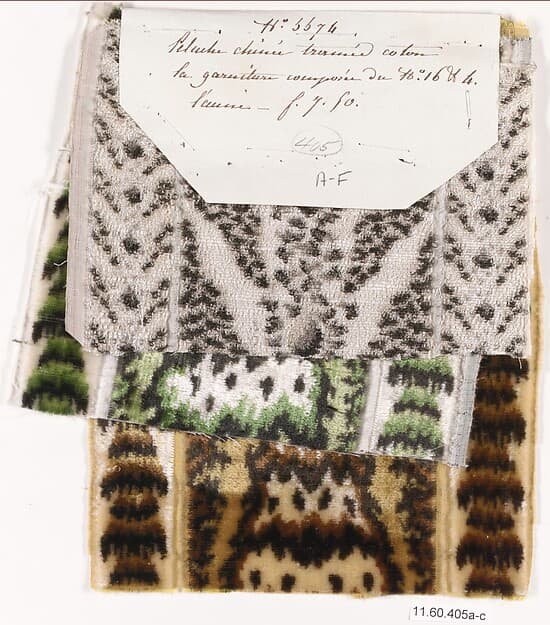 N.º 5574
Peluche chinée tramée coton
la garniture composée du N.º 16 & 4.
l'aune - f. 7. 50.
405
A-F
11.60.405a-c